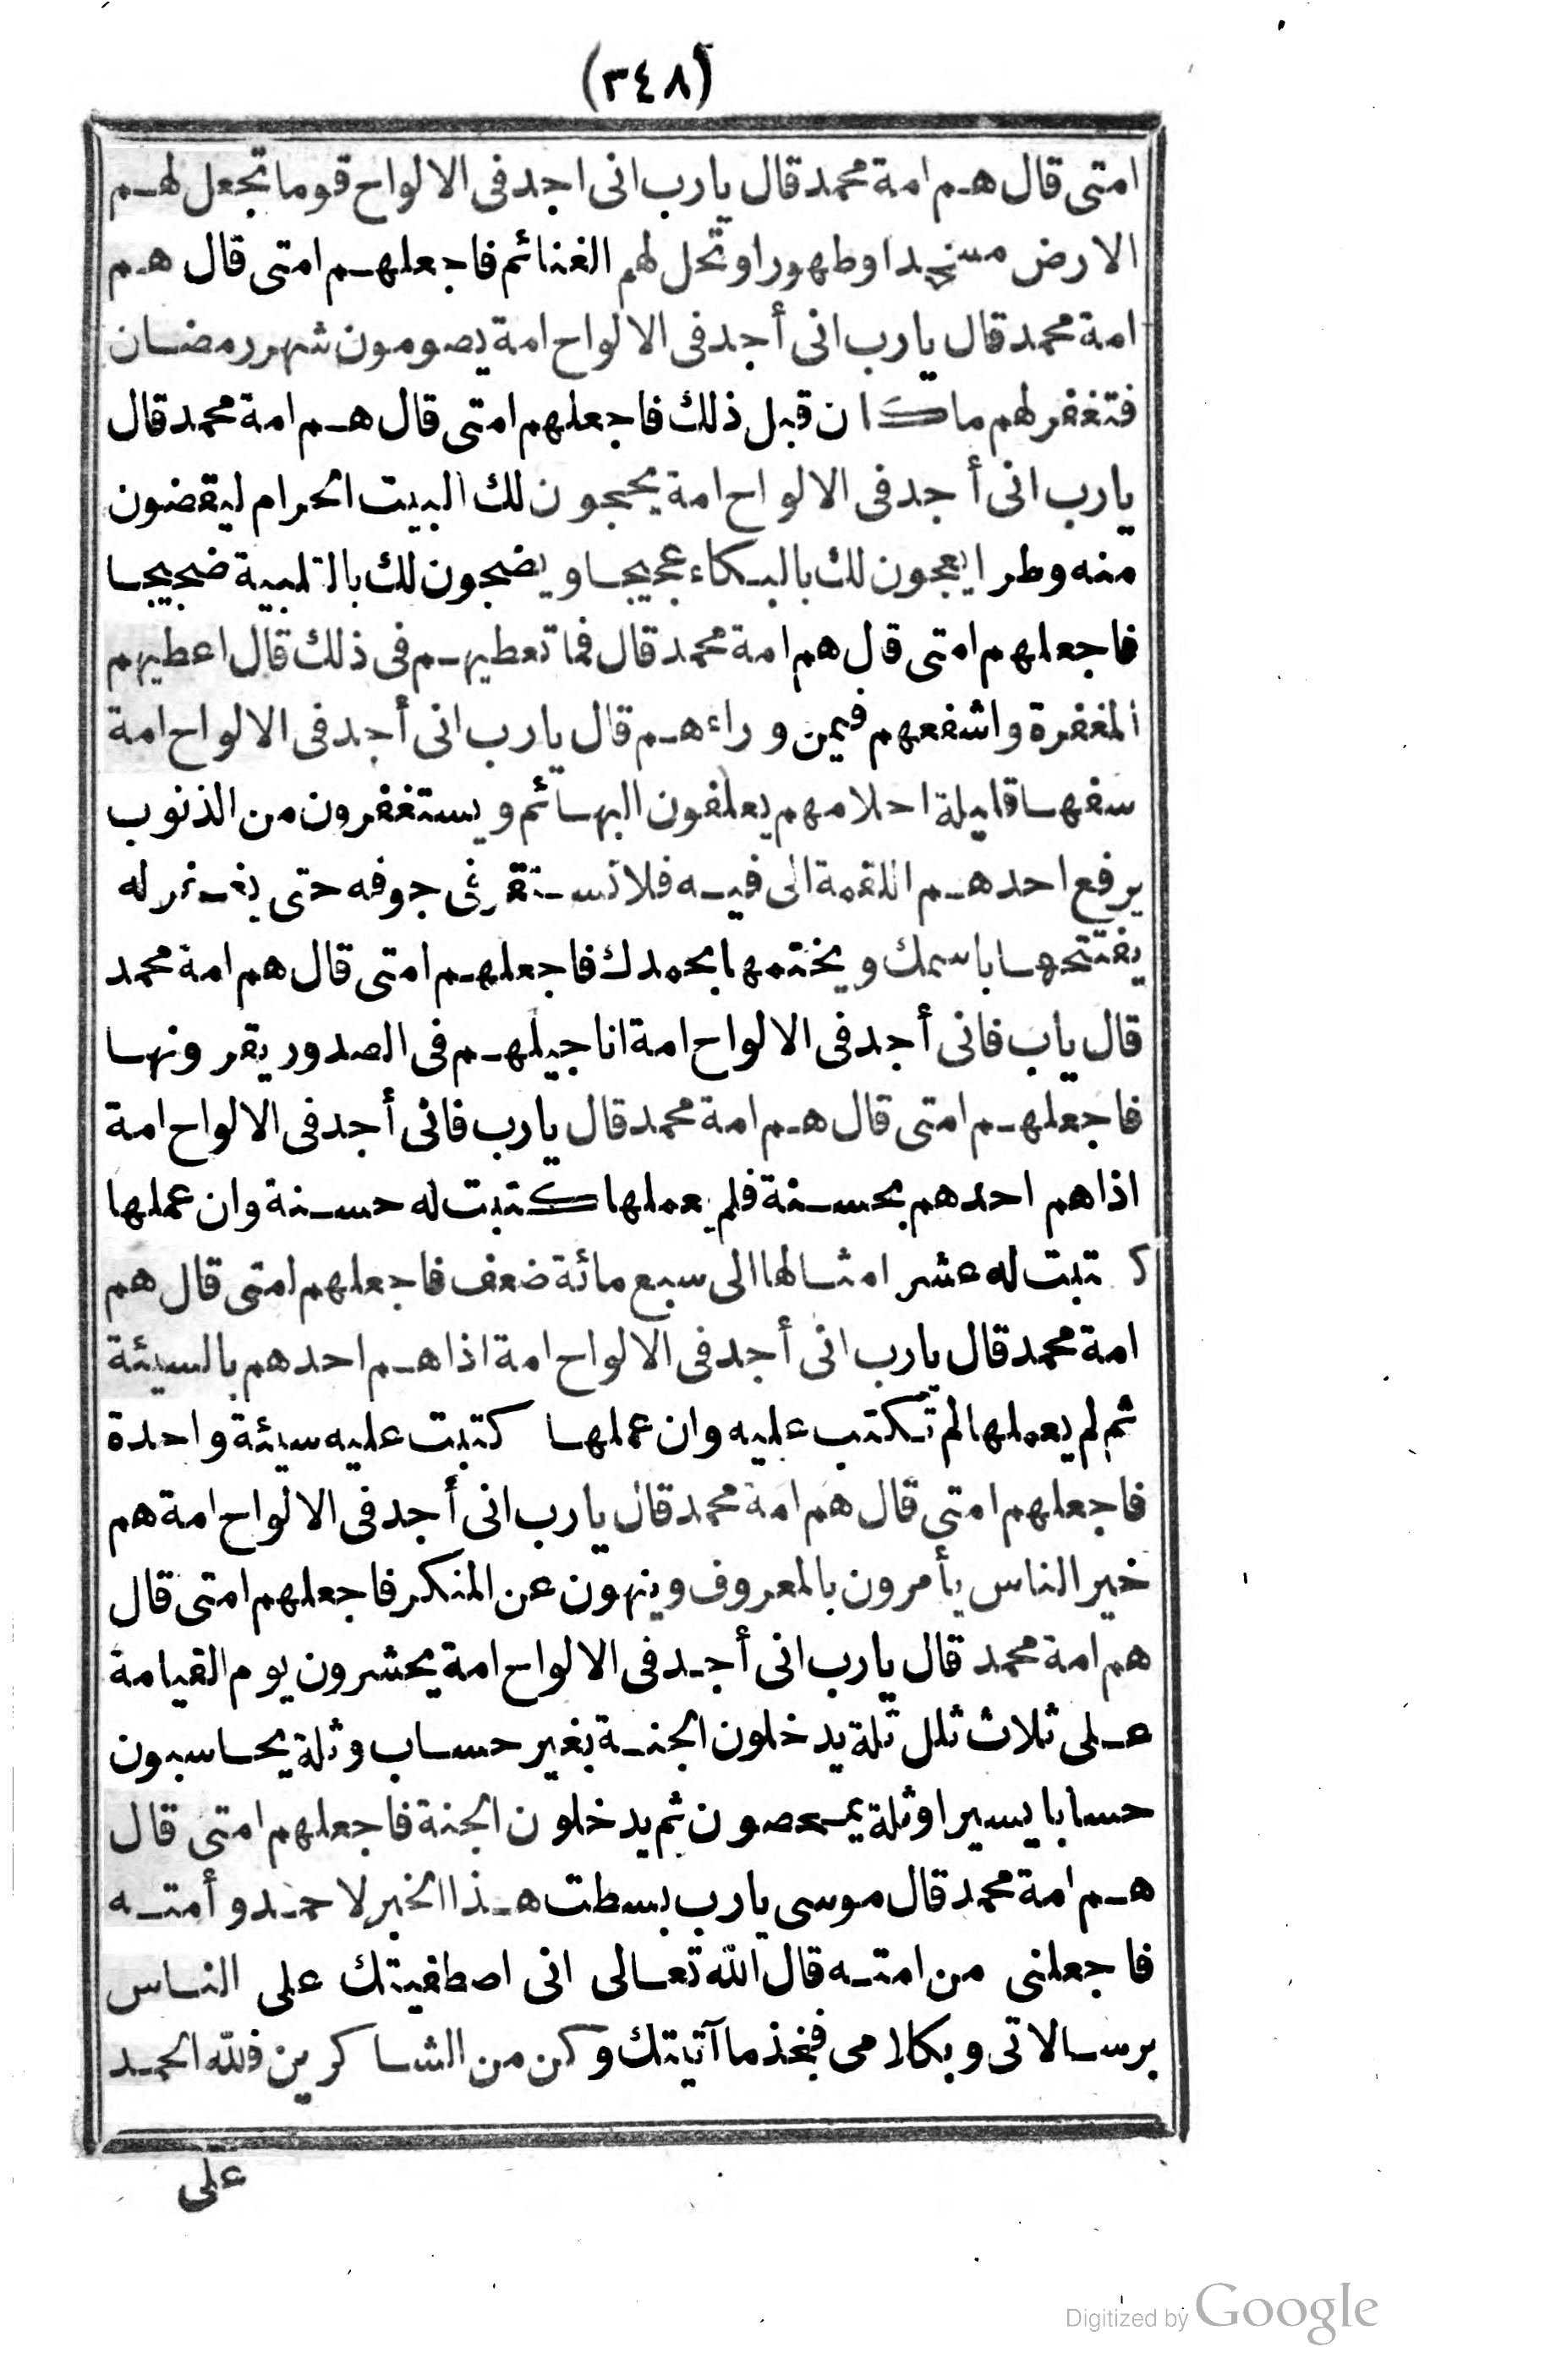 (٣٤٨)
امتى قال هم امة محمد قال يارب انى اجد فى الالواح قوما تجعل لهم
الارض مسجدا وطهورا وتحل لهم الغنائم فاجعلهم امتى قال هم
امة محمد قال يارب انى أجد فى الالواح امة يصومون شهر رمضان
فتغفر لهم ما كان قبل ذلك فاجعلهم امتى قال هم امة محمد قال
يارب انى أجد فى الالواح امة يحجون لك البيت الحرام ليقضون
منه وطرا يعجون لك بالبكاء عجيجا ويضجون لك بالتلبية ضجيجا
فاجعلهم امتى قال هم امة محمد قال فما تعطيهم فى ذلك قال اعطيهم
المغفرة واشفعهم فيمن وراءهم قال يارب انى أجد فى الالواح امة
سفها قليلة احلامهم يعلفون البهائم ويستغفرون من الذنوب
يرفع احدهم اللقمة الى فيه فلا تستقر فى جوفه حتى يغفر له
يفتتحها باسمك ويختمها بحمدك فاجعلهم امتى قال هم امة محمد
قال ياب فانى أجد فى الالواح امة اناجيلهم فى الصدور يقرونها
فاجعلهم امتى قال هم امة محمد قال يارب فانى أجد فى الالواح امة
اذا هم احدهم بحسنة فلم يعملها كتبت له حسنة وان عملها
كتبت له عشر امثالها الى سبع مائة ضعف فاجعلهم امتى قال هم
امة محمد قال يارب انى أجد فى الالواح امة اذا هم احدهم بالسيئة
ثم لم يعملها لم تكتب عليه وان عملها كتبت عليه سيئة واحدة
فاجعلهم امتى قال هم امة محمد قال يارب انى أجد فى الالواح امة هم
خير الناس يأمرون بالمعروف وينهون عن المنكر فاجعلهم امتى قال
هم امة محمد قال يارب انى أجد فى الالواح امة يحشرون يوم القيامة
على ثلاث ثلل ثلة يدخلون الجنة بغير حساب وثلة يحاسبون
حسابا يسيرا وثلة يمحصون ثم يدخلون الجنة فاجعلهم امتى قال
هم امة محمد قال موسى يارب بسطت هذا الخير لاحمد وأمته
فاجعلنى من امته قال الله تعالى انى اصطفيتك على الناس
برسالاتى وبكلامى فخذ ما آتيتك وكن من الشاكرين فلله الحمد
على
Digitized by Google